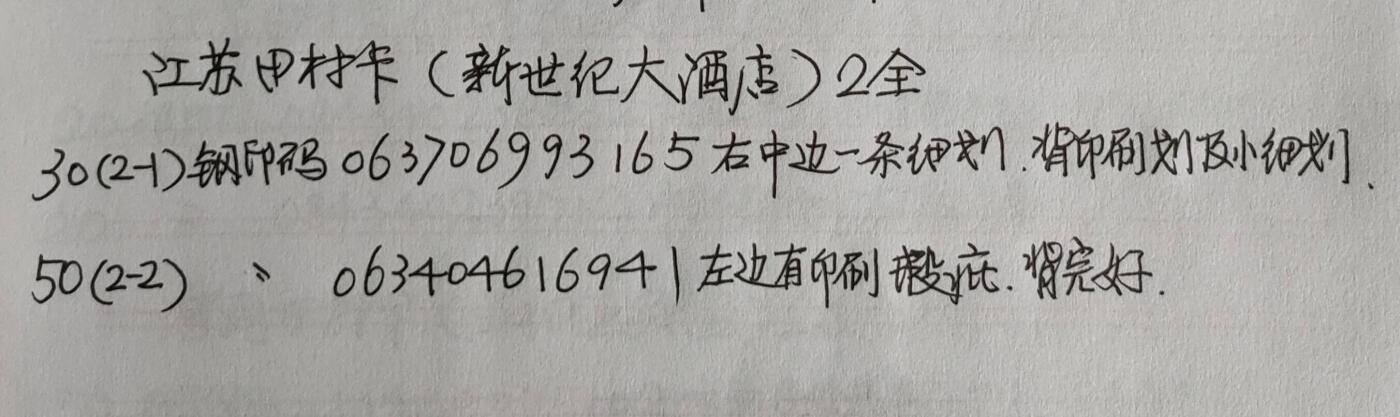 江苏田村卡（新世纪大酒店）2全
30(2-1)钢印码063706993165右中边一条细划.背印刷划及小细划.
50(2-2) 〃 063404616941左边有印刷瑕疵.背完好.